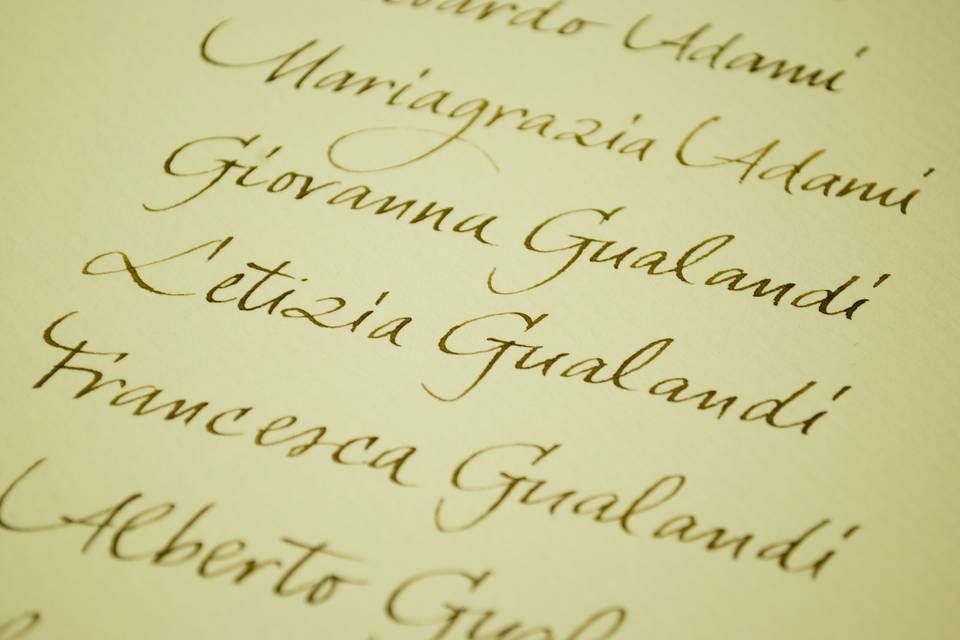 Adami
Mariagrazia Adami
Giovanna Gualandi
Letizia Gualandi
Francesca Gualandi
Alberto